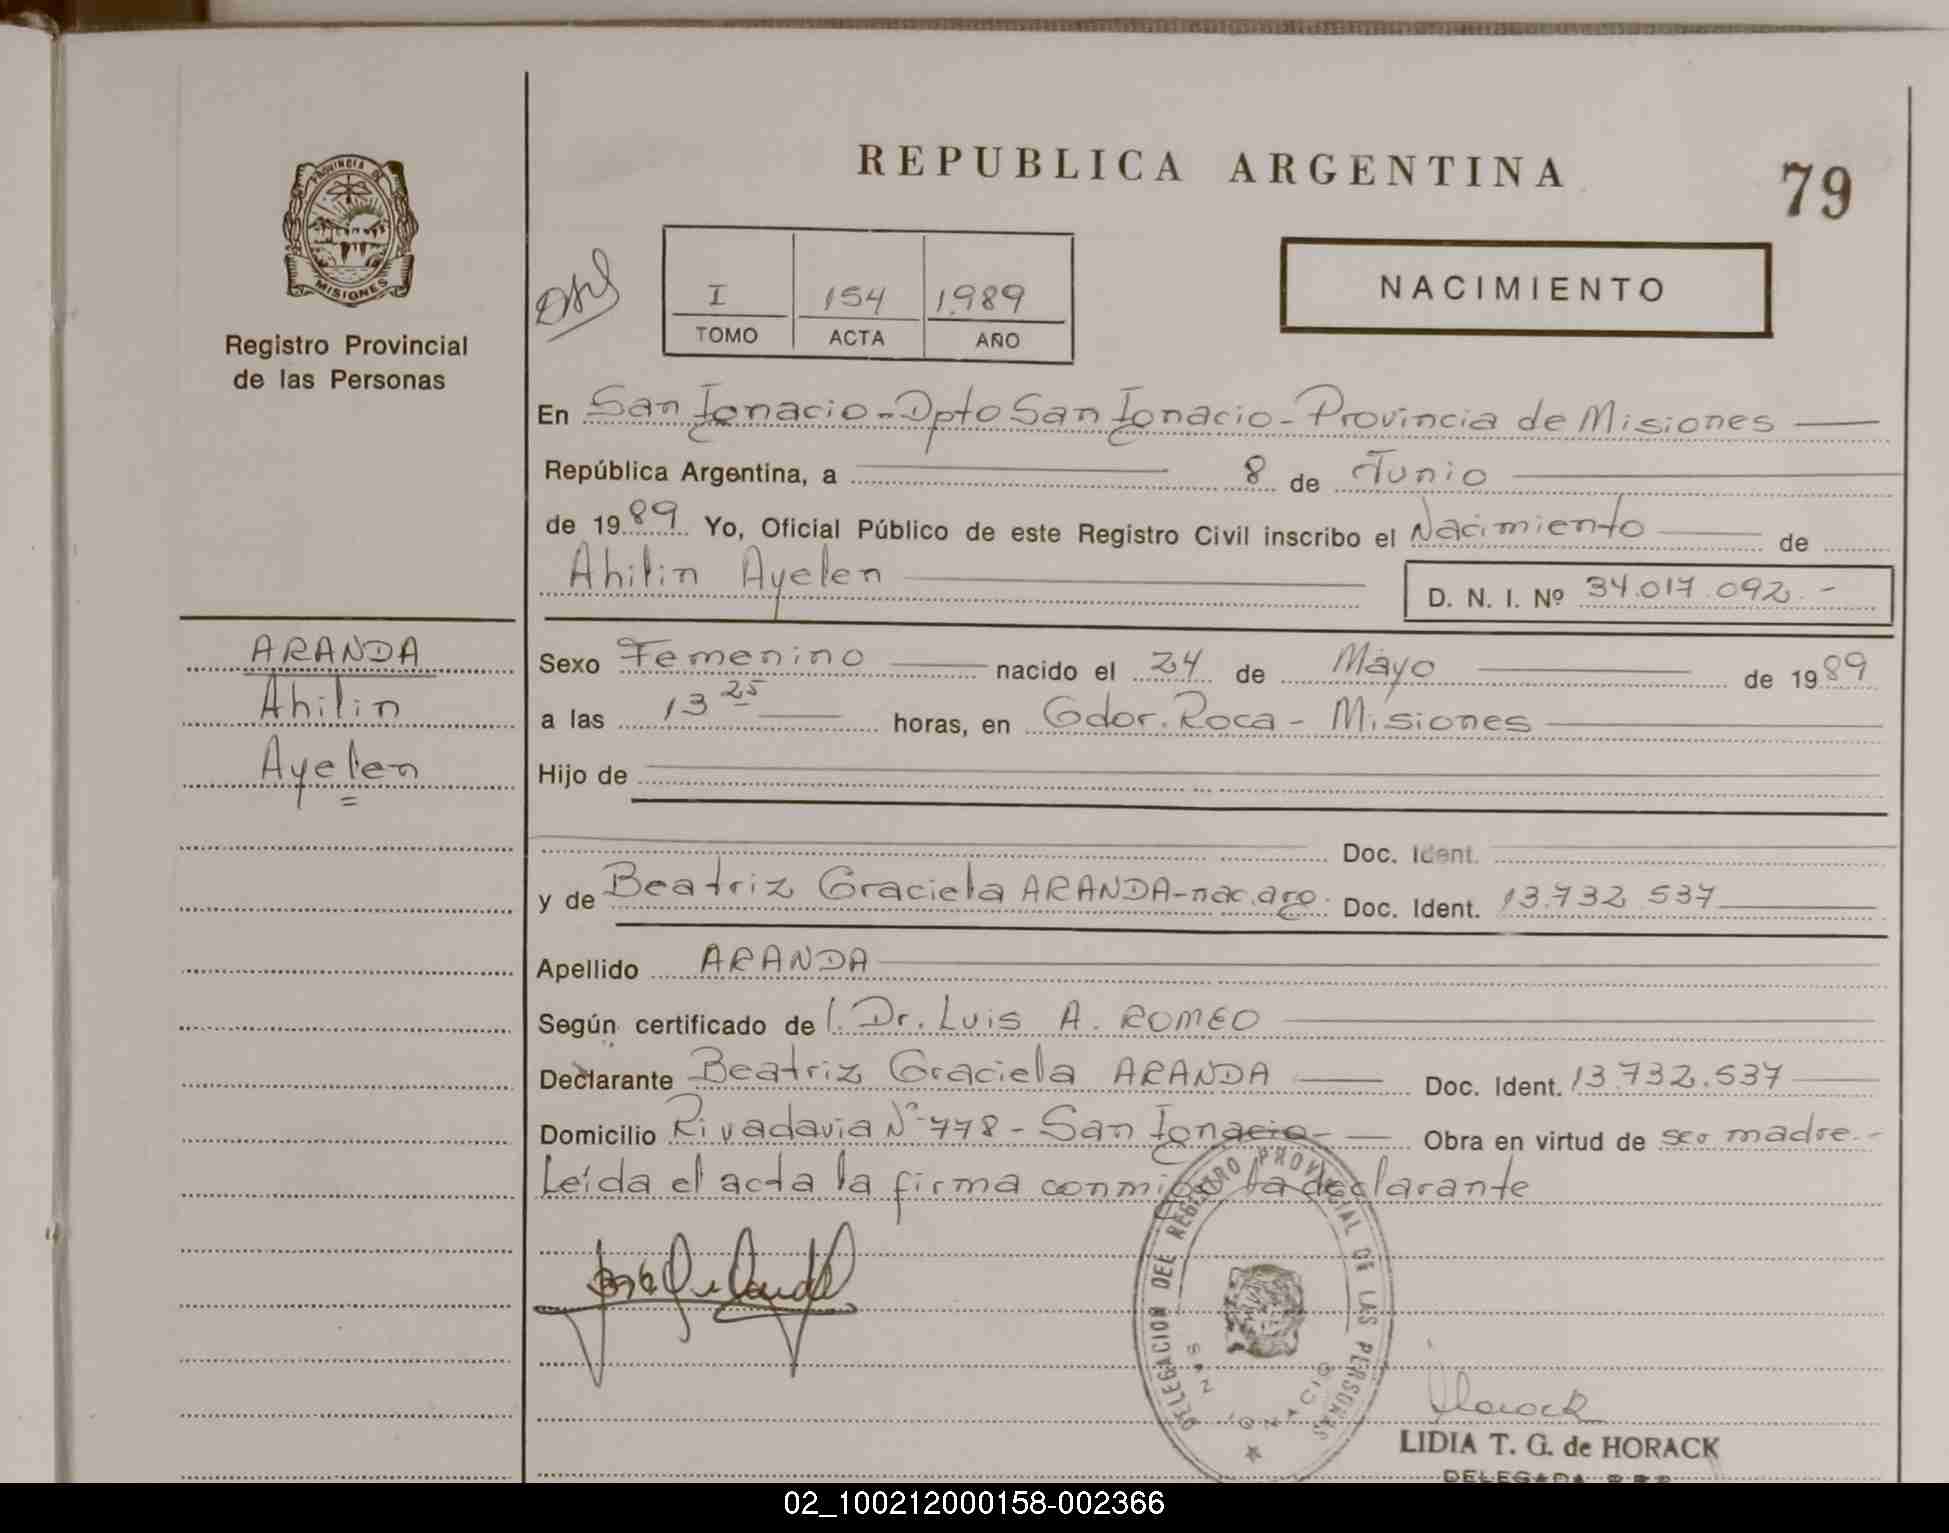 REPUBLICA ARGENTINA
79
PROVINCIA DE
MISIONES
Registro Provincial
de las Personas
I 154 1.989
TOMO ACTA AÑO
NACIMIENTO
En San Ignacio - Dpto San Ignacio - Provincia de Misiones
República Argentina, a 8 de Junio
de 1989 Yo, Oficial Público de este Registro Civil inscribo el Nacimiento de
Ahilin Ayelen
D. N. I. Nº 34.017.092.-
ARANDA
Ahilin
Ayelen
Sexo Femenino nacido el 24 de Mayo de 1989
a las 13 25 horas, en Gdor. Roca - Misiones
Hijo de
Doc. Ident.
y de Beatriz Graciela ARANDA - nac. arg. Doc. Ident. 13.732.537
Apellido ARANDA
Según certificado de l. Dr. Luis A. ROMEO
Declarante Beatriz Graciela ARANDA Doc. Ident. 13.732.537
Domicilio Rivadavia Nº 778 - San Ignacio - Obra en virtud de ser madre.-
Leída el acta la firma conmigo la declarante
DELEGACION DEL REGISTRO PROVINCIAL DE LAS PERSONAS
SAN IGNACIO
Horack
LIDIA T. G. de HORACK
DELEGADA R.P.P.
02_100212000158-002366